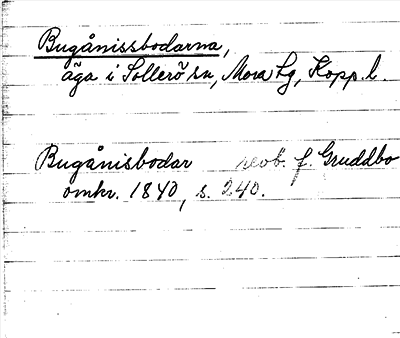 Bugånissbodarna,
äga i Sollerö sn, Mora tg, Kopp. l.
Bugånisbodar reob. f. Gruddbo
omkr. 1840, s. 240.